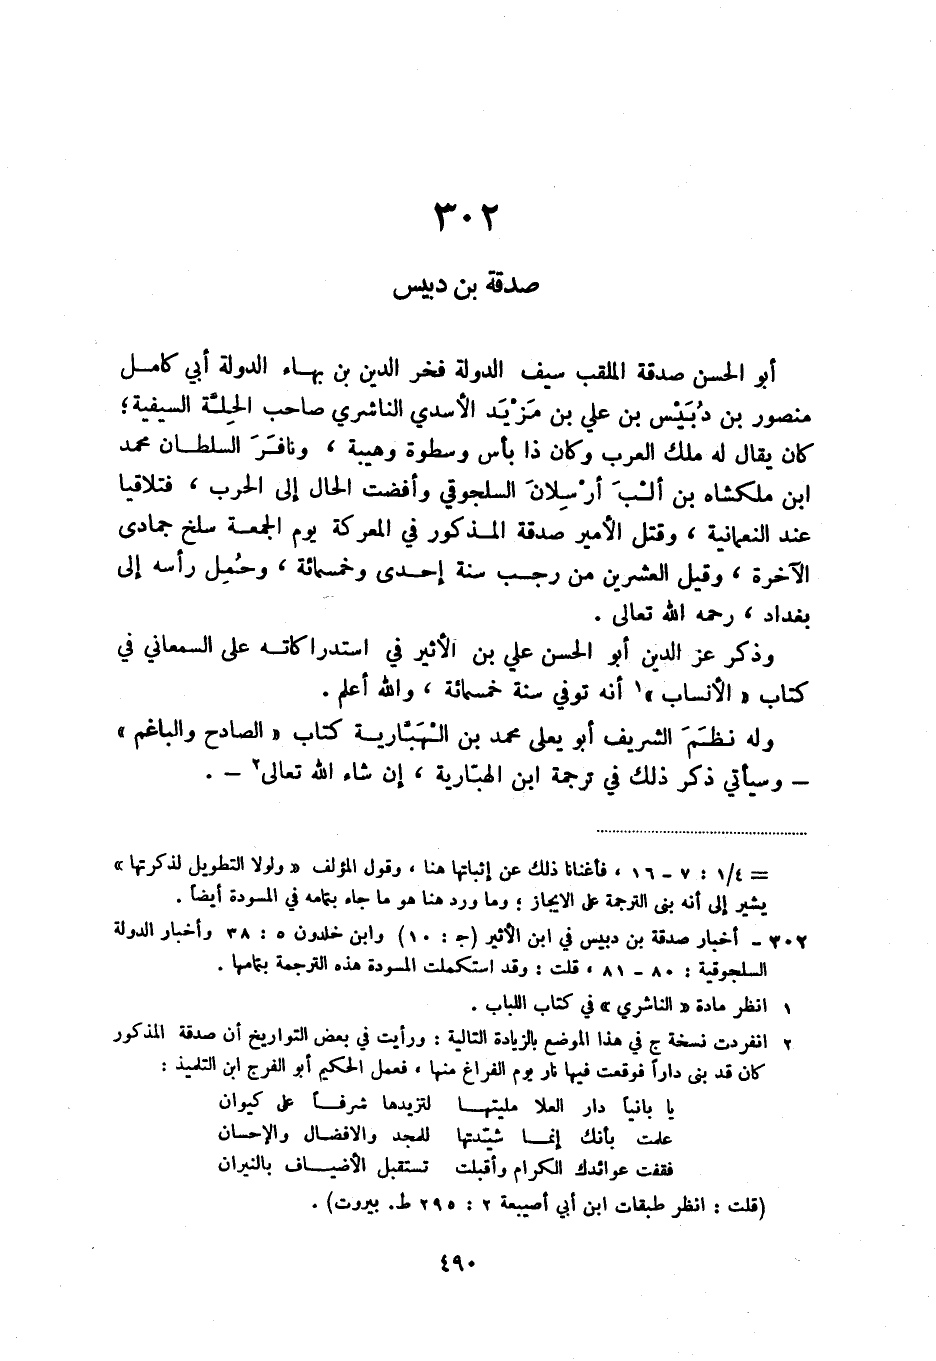 ٣٠٢
صدقة بن دبيس
أبو الحسن صدقة الملقب سيف الدولة فخر الدين بن بهاء الدولة أبي كامل
منصور بن دُبَيْس بن علي بن مَزْيَد الأسدي الناشري صاحب الحِلَّة السيفية؛
كان يقال له ملك العرب وكان ذا بأس وسطوة وهيبة ، ونافَرَ السلطان محمد
ابن ملكشاه بن ألْب أرْسِلان السلجوقي وأفضت الحال إلى الحرب ، فتلاقيا
عند النعمانية ، وقتل الأمير صدقة المذكور في المعركة يوم الجمعة سلخ جمادى
الآخرة ، وقيل العشرين من رجب سنة إحدى وخمسمائة ، وحُمِل رأسه إلى
بغداد ، رحمه الله تعالى .
وذكر عز الدين أبو الحسن علي بن الأثير في استدراكاته على السمعاني في
كتاب « الأنساب »١ أنه توفي سنة خمسمائة ، والله أعلم .
وله نظَمَ الشريف أبو يعلى محمد بن الهَبَّارية كتاب « الصادح والباغم »
– وسيأتي ذكر ذلك في ترجمة ابن الهبّارية ، إن شاء الله تعالى٢ – .
= ١/٤ : ٧ – ١٦ ، فأغنانا ذلك عن إثباتها هنا ، وقول المؤلف « ولولا التطويل لذكرتها »
يشير إلى أنه بنى الترجمة على الايجاز ؛ وما ورد هنا هو ما جاء بتمامه في المسودة أيضاً .
٣٠٢ – أخبار صدقة بن دبيس في ابن الأثير (ج : ١٠) وابن خلدون ٥ : ٣٨ وأخبار الدولة
السلجوقية : ٨٠ – ٨١ ، قلت : وقد استكملت المسودة هذه الترجمة بتمامها .
١ انظر مادة « الناشري » في كتاب اللباب .
٢ انفردت نسخة ج في هذا الموضع بالزيادة التالية : ورأيت في بعض التواريخ أن صدقة المذكور
كان قد بنى داراً فوقعت فيها نار يوم الفراغ منها ، فعمل الحكيم أبو الفرج ابن التلميذ :
يا بانياً دار العلا مليتها لتزيدها شرفاً على كيوان
علمت بأنك إنما شيّدتها للمجد والافضال والإحسان
فقفت عوائدك الكرام وأقبلت تستقبل الأضياف بالنيران
(قلت : انظر طبقات ابن أبي أصيبعة ٢ : ٢٩٥ ط. بيروت) .
٤٩٠